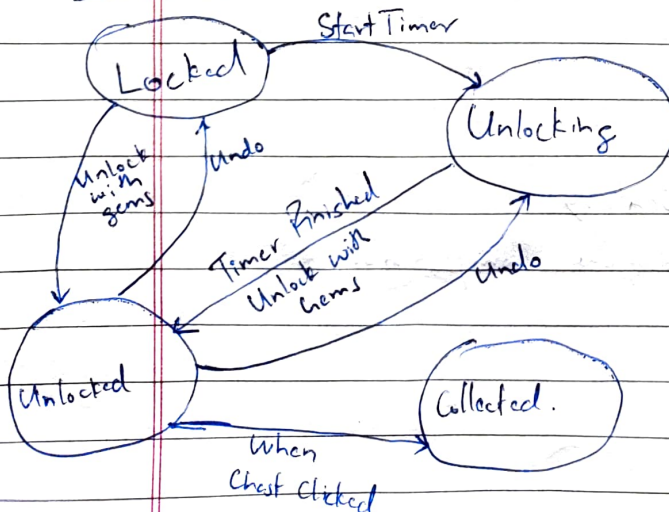 Start Timer
Locked
Unlocking
Unlock
with
gems
Undo
Timer Finished
Unlock with
Gems
Undo
Unlocked
Collected.
When
Chest Clicked